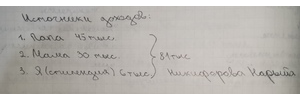 Источники доходов:
1. Папа 45 тыс
2. Мама 30 тыс. } 81 тыс
3. Я (стипендия) 6 тыс Никифорова